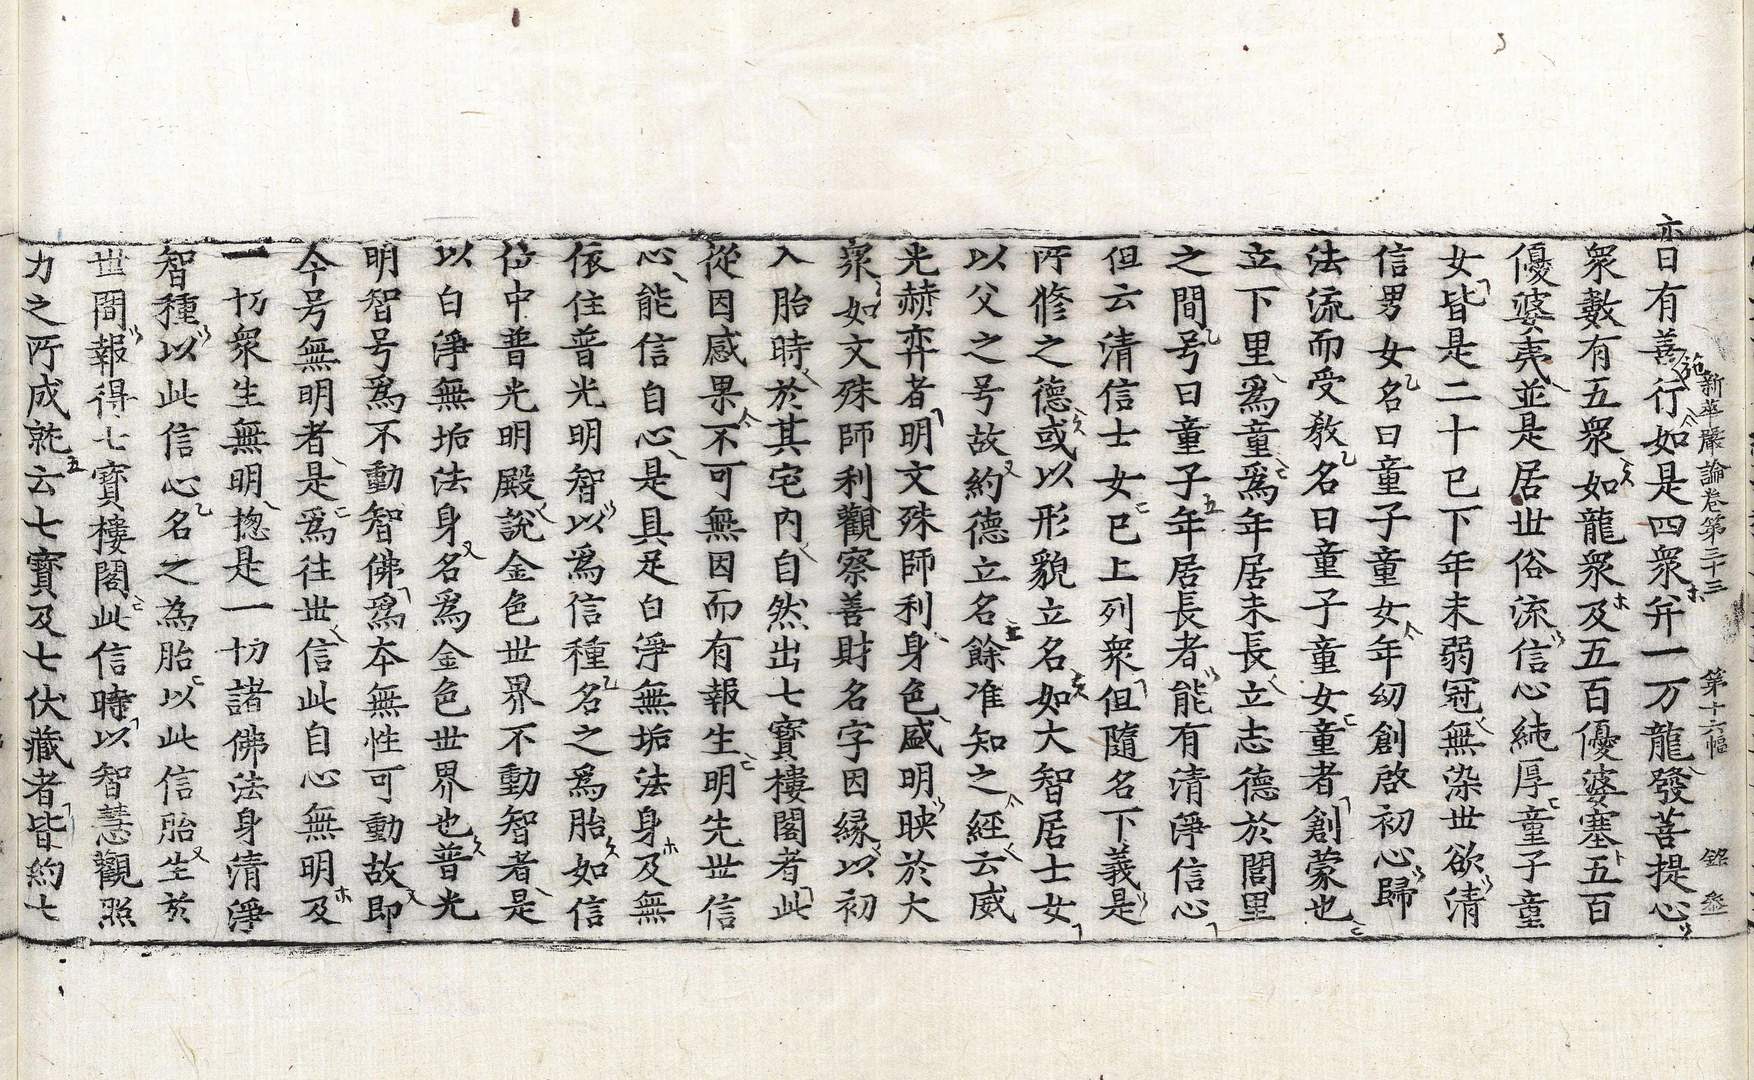 新華嚴論卷第三十三　第十六幅　銘　叄
亦曰有善行如是四衆并一万龍發菩提心
衆數有五衆如龍衆及五百優婆塞五百
優婆夷並是居世俗流信心純厚童子童
女皆是二十已下年未弱冠無染世欲清
信男女名曰童子童女年幼創啓初心歸
法流而受教名曰童子童女童者創蒙也
立下里爲童爲年居未長立志德於閭里
之間号曰童子年居長者能有清淨信心
但云清信士女已上列衆但隨名下義是
所修之德或以形貌立名如大智居士女
以父之号故約德立名餘准知之經云威
光赫弈者明文殊師利身色盛明映於大
衆如文殊師利觀察善財名字因縁以初
入胎時於其宅內自然出七寶樓閣者此
從因感果不可無因而有報生明先世信
心能信自心是具足白淨無垢法身及無
依住普光明智以爲信種名之爲胎如信
位中普光明殿說金色世界不動智者是
以白淨無垢法身名爲金色世界也普光
明智号爲不動智佛爲本無性可動故即
今号無明者是爲往世信此自心無明及
一切衆生無明揔是一切諸佛法身清淨
智種以此信心名之為胎以此信胎生於
世間報得七寶樓閣此信時以智慧觀照
力之所成就云七寶及七伏藏者皆約七